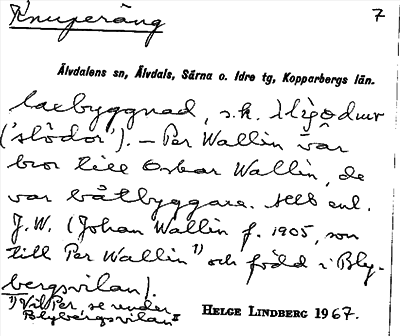 Knuperäng
7
Älvdalens sn, Älvdals, Särna o. Idre tg, Kopparbergs län.
byggnad, s.k.
('slödor'). – Per Wallin var
bror till Oskar Wallin, de
var båtbyggare. Allt enl.
J.W. (Johan Wallin f. 1905, son
till Per Wallin¹⁾ och född i Bly-
bergsvilan).
¹⁾ Vil Per, se under
Blybergsvilan
HELGE LINDBERG 1967.